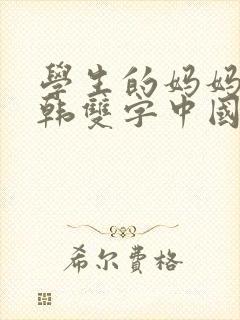 學生的妈妈
韩雙字中國
希尔费格